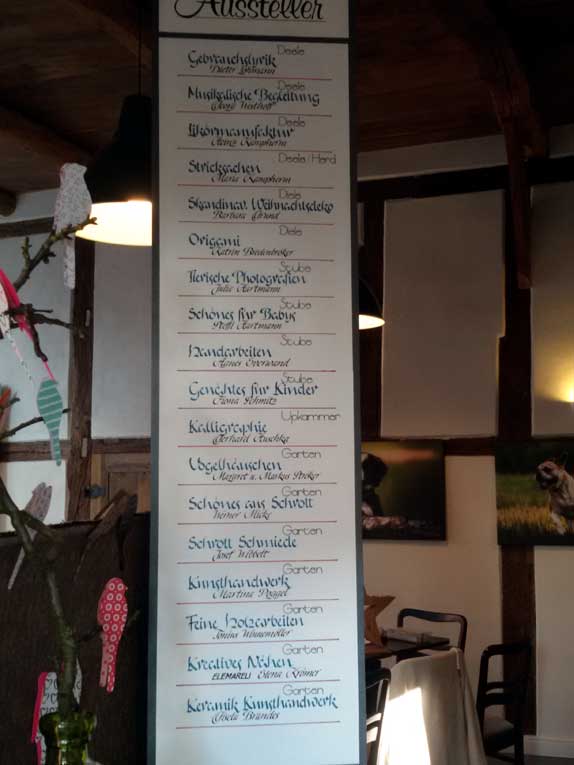 Aussteller
Deele
Gebrauchslyrik
Dieter
Deele
Musikalische Begleitung
Deele
Likörmanufaktur
Heinz Kampherm
Deele/Hard
Stricksachen
Maria Kampherm
Diele
Skandinav. Weihnachtsdeko
Barbara
Diele
Origami
Katrin Biedenbröker
Stube
Tierische Photografien
Julia Hartmann
Stube
Schönes für Babys
Steffi Hartmann
Stube
Handarbeiten
Agnes
Stube
Genähtes für Kinder
Fiona Schmitz
Upkammer
Kalligraphie
Gerhard
Garten
Vogelhäuschen
Margret u. Markus Pröker
Garten
Schönes aus Schrott
Werner
Garten
Schrott Schmiede
Josef
Garten
Kunsthandwerk
Martina Poggel
Garten
Feine Holzarbeiten
Janina Winnemöller
Garten
Kreatives Nähen
ELEMARELI Elena Krämer
Garten
Keramik Kunsthandwerk
Gisela Brandes